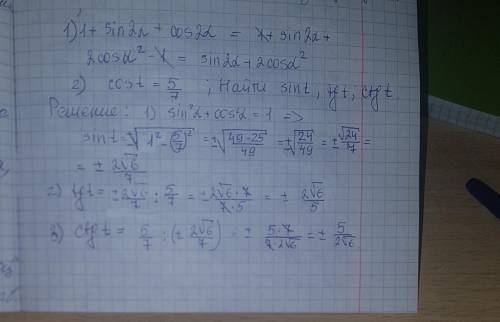 1) 1 + sin2α + cos2α = 1 + sin2α +
2cosα² - 1 = sin2α + 2cosα²
2) cost = 5/7 ; Найти sint, tgt, ctgt.
Решение: 1) sin²α + cos²α = 1 =>
sint = ±√(1² - (5/7)²) = ±√((49-25)/49) = ±√(24/49) = ±√24/7 =
= ± 2√6/7
2) tgt = ± 2√6/7 : 5/7 = ± (2√6·7)/(7·5) = ± 2√6/5
3) ctgt = 5/7 : (± 2√6/7) = ± (5·7)/(7·2√6) = ± 5/(2√6)